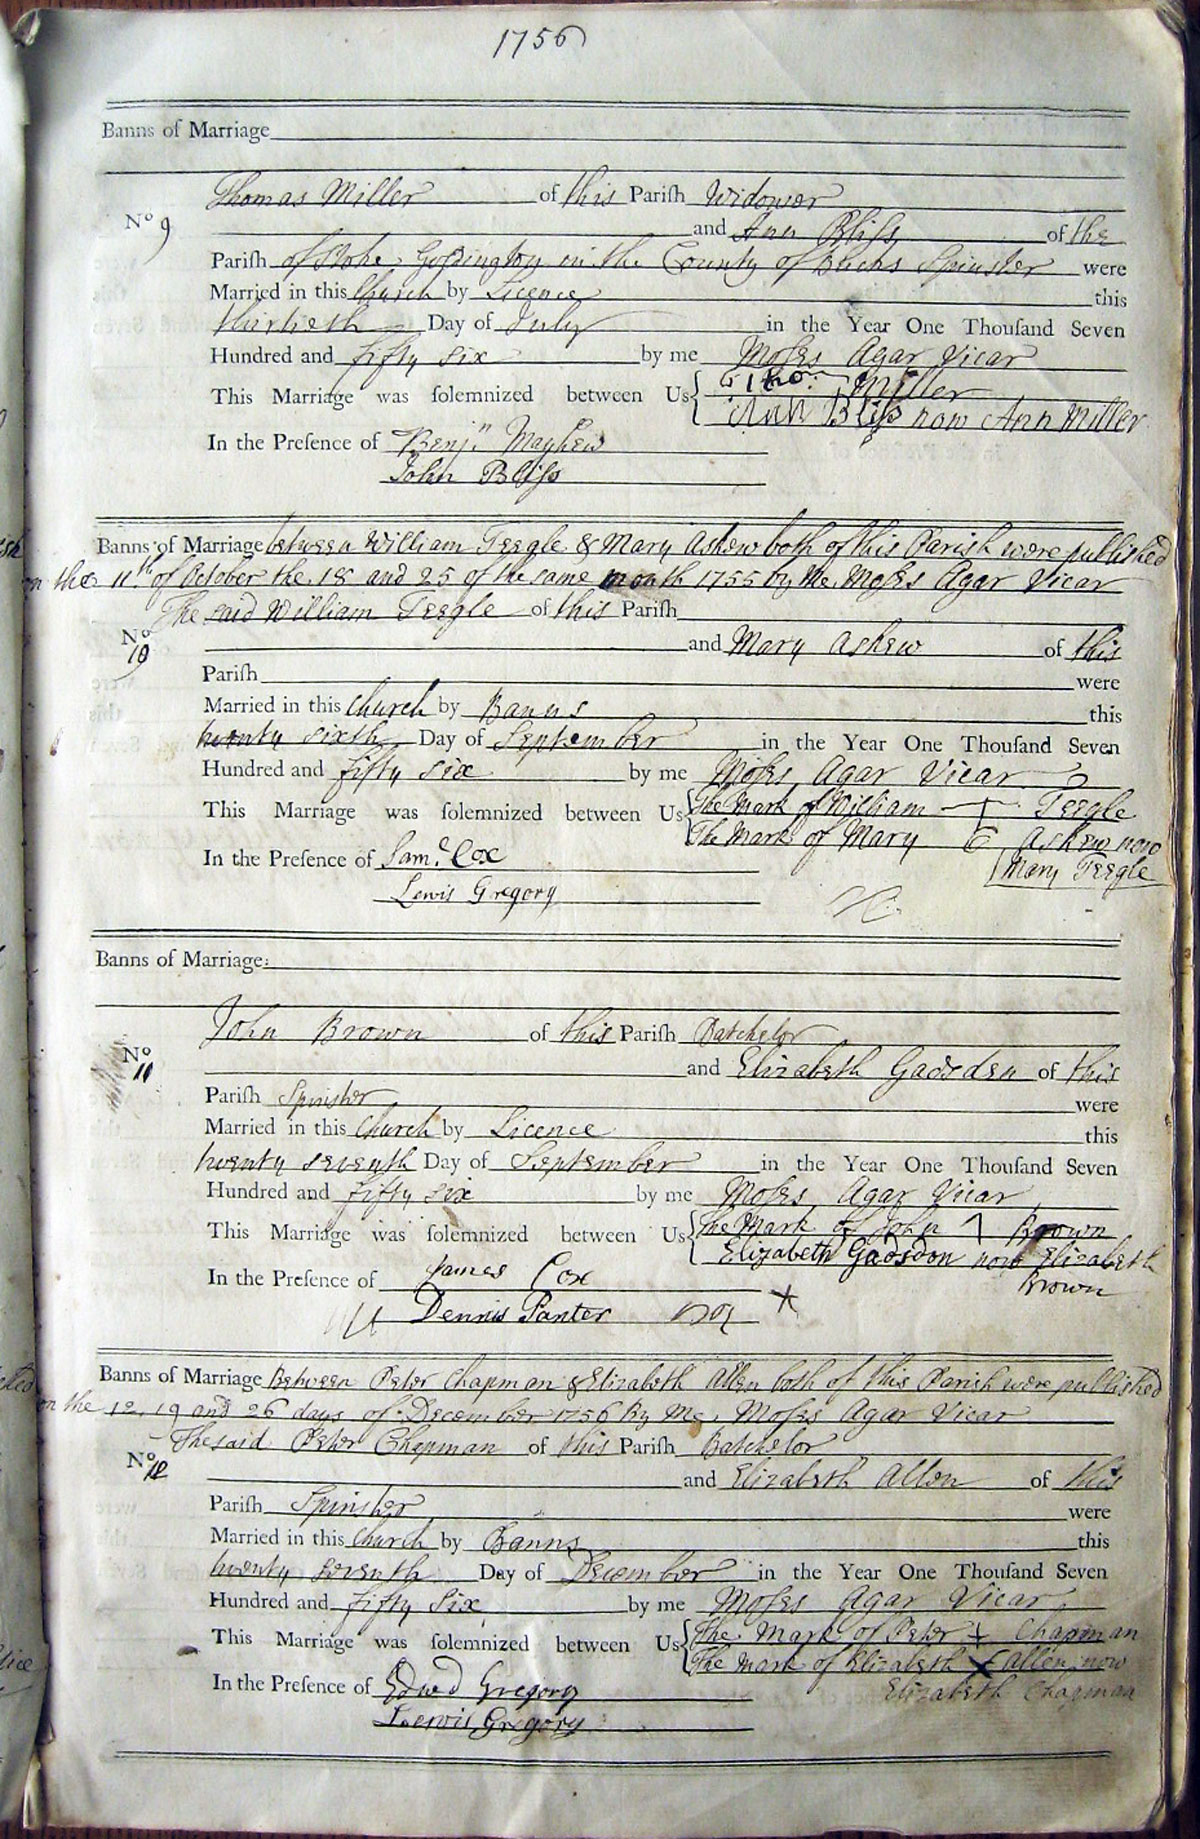 1756
Banns of Marriage
Thomas Miller of this Pariſh Widower
No 9
and Ann Bliſs of the
Pariſh of Stoke Goldington in the County of Bucks Spinster were
Married in this Church by Licence this
thirtieth Day of July in the Year One Thouſand Seven
Hundred and fifty six by me Moſes Agar Vicar
This Marriage was ſolemnized between Us Tho: Miller
Ann Bliſs now Ann Miller
In the Preſence of Benjn Mayhew
John Bliſs
Banns of Marriage between William Teegle & Mary Askew both of this Parish were published
on the 11th of October the 18 and 25 of the same month 1755 by Me Moſes Agar Vicar
The said William Teegle of this Pariſh
No 10
and Mary Askew of this
Pariſh were
Married in this Church by Banns this
twenty sixth Day of September in the Year One Thouſand Seven
Hundred and fifty six by me Moſes Agar Vicar
This Marriage was ſolemnized between Us The Mark of William Teegle
The Mark of Mary Askew now
Mary Teegle
In the Preſence of Saml Cox
Lewis Gregory
Banns of Marriage
John Brown of this Pariſh Batchelor
No 11
and Elizabeth Gadsden of this
Pariſh Spinster were
Married in this Church by Licence this
twenty seventh Day of September in the Year One Thouſand Seven
Hundred and fifty six by me Moſes Agar Vicar
This Marriage was ſolemnized between Us The Mark of John Brown
Elizabeth Gadsdon now Elizabeth
Brown
In the Preſence of James Cox
Dennis Panter
Banns of Marriage Between Peter Chapman & Elizabeth Allen both of this Parish were published
on the 12, 19 and 26 days of December 1756 By Me, Moſes Agar Vicar
The said Peter Chapman of this Pariſh Batchelor
No 12
and Elizabeth Allen of this
Pariſh Spinster were
Married in this Church by Banns this
twenty seventh Day of December in the Year One Thouſand Seven
Hundred and fifty six by me Moſes Agar Vicar
This Marriage was ſolemnized between Us The Mark of Peter + Chapman
The Mark of Elizabeth X Allen now
Elizabeth Chapman
In the Preſence of Edwd Gregory
Lewis Gregory